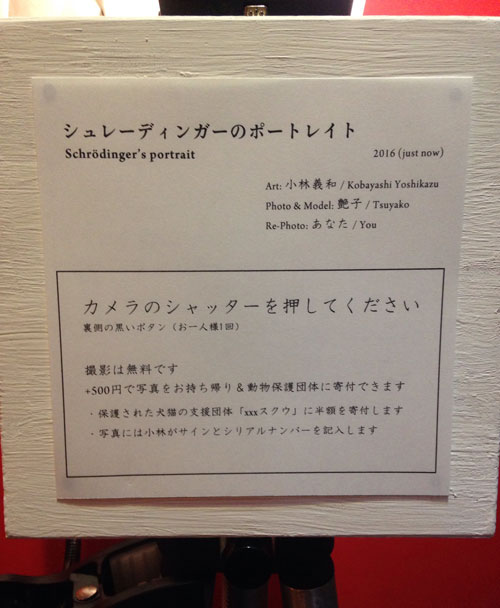 シュレーディンガーのポートレイト
Schrödinger's portrait
2016 (just now)
Art: 小林義和 / Kobayashi Yoshikazu
Photo & Model: 艶子 / Tsuyako
Re-Photo: あなた / You
カメラのシャッターを押してください
裏側の黒いボタン（お一人様1回）
撮影は無料です
+500円で写真をお持ち帰り＆動物保護団体に寄付できます
・保護された犬猫の支援団体「xxxスクウ」に半額を寄付します
・写真には小林がサインとシリアルナンバーを記入します